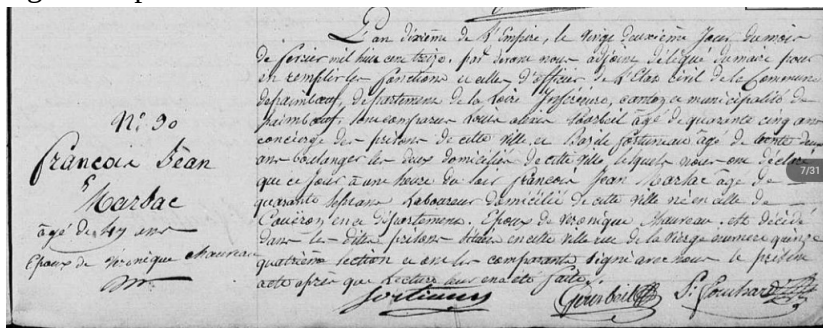 N.º 90
François Jean
Marsac
âgé de 47 ans
Epoux de Véronique Maureau
L'an dixième de l'Empire, le vingt deuxième jour du mois
de février mil huit cent treize, par devant nous adjoint délégué du maire pour
en remplir les fonctions et celles d'officier de l'Etat civil de la Commune
de paimbœuf, département de la Loire Inférieure, canton et municipalité de
paimbœuf, sont comparus Louis âgé de quarante cinq ans
concierge des prisons de cette ville et Basile fortuneau âgé de trente deux
ans boulanger les deux domiciliés de cette ville lesquels nous ont déclaré
que ce jour à une heure du soir françois Jean Marsac âgé de
quarante sept ans Laboureur domicilié de cette ville né en celle de
Couëron en ce département. Epoux de Véronique Maureau est décédé
dans les dites prisons situées en cette ville rue de la vierge numéro quinze
quatrième section et ont les comparants signé avec nous le présent
acte après que lecture leur en a été faite.
fortuneau
7/31